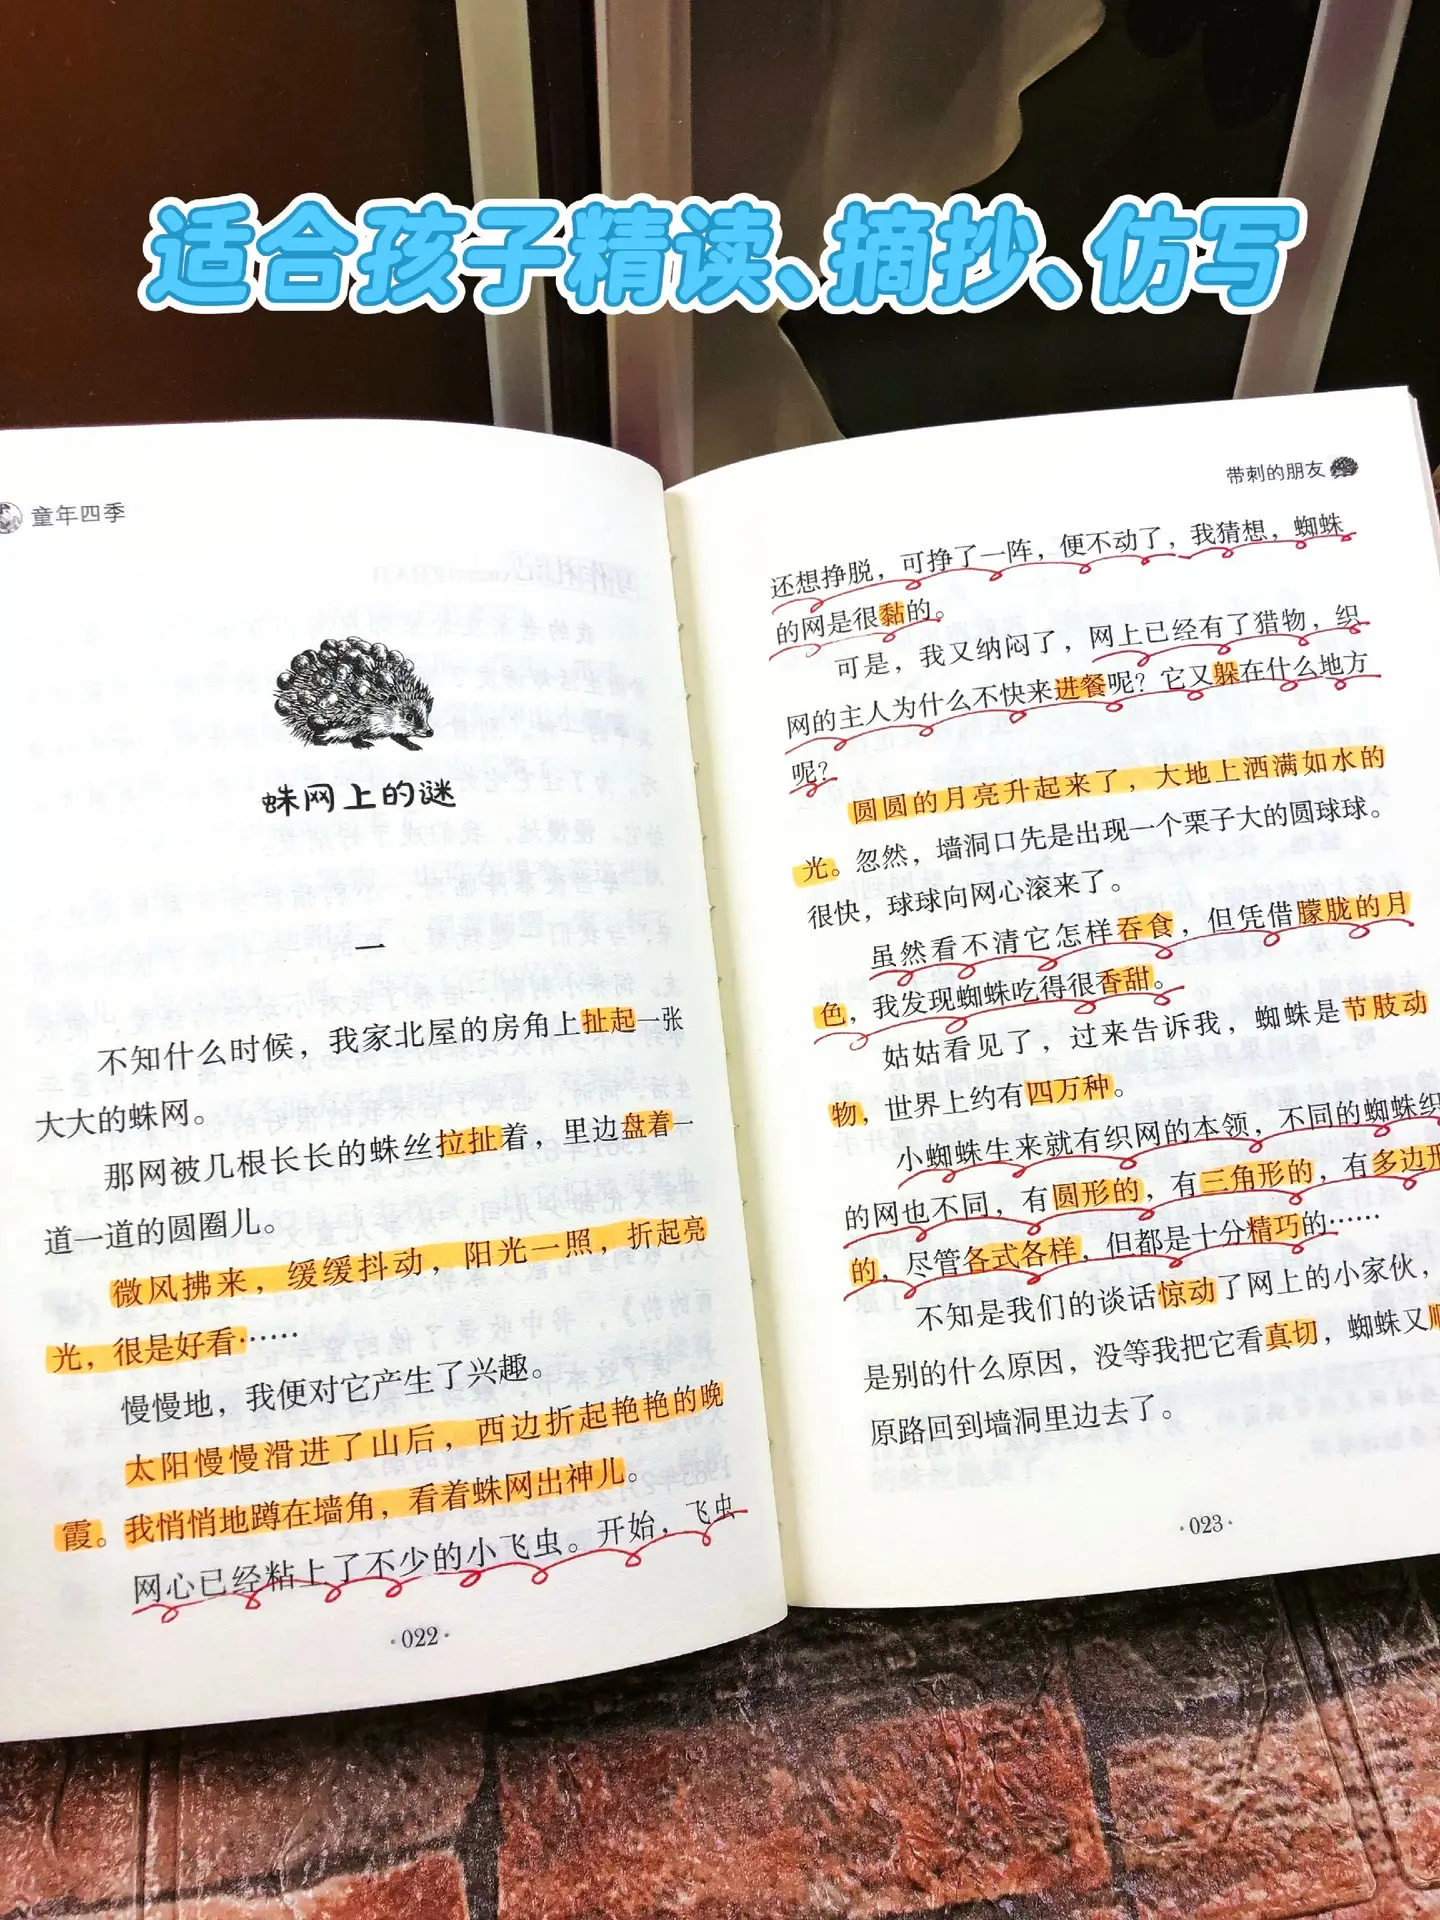 适合孩子精读、摘抄、仿写
童年四季
蛛网上的谜
一
不知什么时候，我家北屋的房角上扯起一张
大大的蛛网。
那网被几根长长的蛛丝拉扯着，里边盘着一
道一道的圆圈儿。
微风拂来，缓缓抖动，阳光一照，折起亮
光，很是好看……
慢慢地，我便对它产生了兴趣。
太阳慢慢滑进了山后，西边折起艳艳的晚
霞。我悄悄地蹲在墙角，看着蛛网出神儿。
网心已经粘上了不少的小飞虫。开始，飞虫
·022·
带刺的朋友
还想挣脱，可挣了一阵，便不动了，我猜想，蜘蛛
的网是很黏的。
可是，我又纳闷了，网上已经有了猎物，织
网的主人为什么不快来进餐呢？它又躲在什么地方
呢？
圆圆的月亮升起来了，大地上洒满如水的
光。忽然，墙洞口先是出现一个栗子大的圆球球。
很快，球球向网心滚来了。
虽然看不清它怎样吞食，但凭借朦胧的月
色，我发现蜘蛛吃得很香甜。
姑姑看见了，过来告诉我，蜘蛛是节肢动
物，世界上约有四万种。
小蜘蛛生来就有织网的本领，不同的蜘蛛织
的网也不同，有圆形的，有三角形的，有多边形
的，尽管各式各样，但都是十分精巧的……
不知是我们的谈话惊动了网上的小家伙，
是别的什么原因，没等我把它看真切，蜘蛛又顺
原路回到墙洞里边去了。
·023·